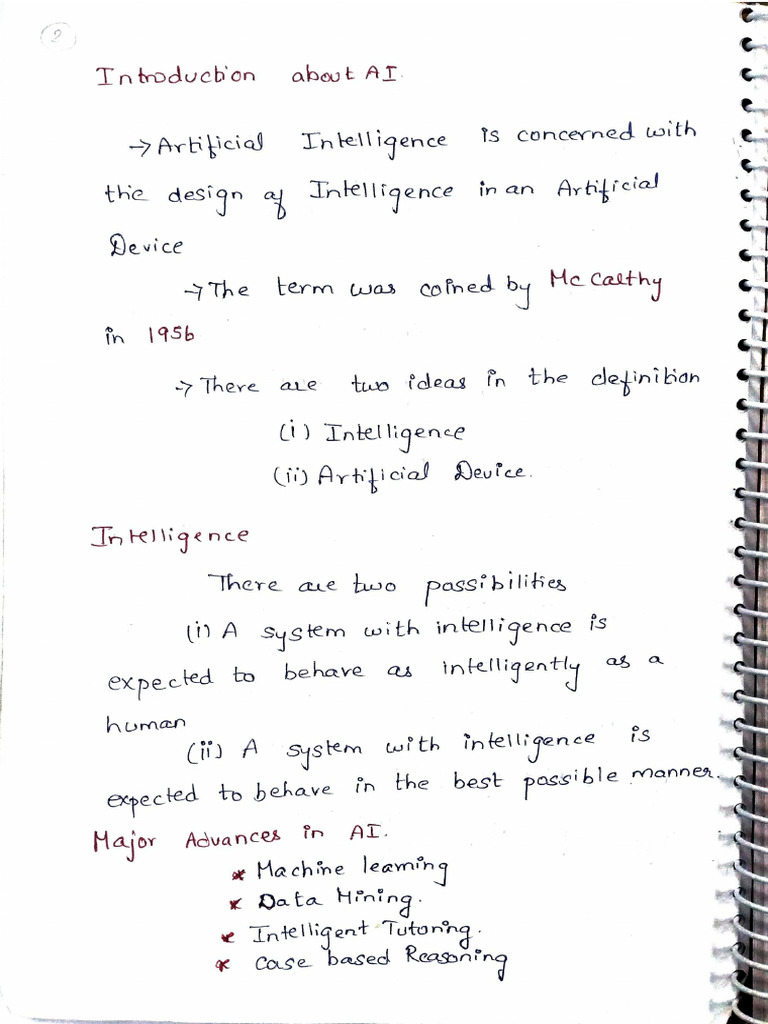 2
Introduction about AI.
→ Artificial Intelligence is concerned with
the design of Intelligence in an Artificial
Device
→ The term was coined by Mc Calthy
in 1956
→ There are two ideas in the definition
(i) Intelligence
(ii) Artificial Device.
Intelligence
There are two possibilities
(i) A system with intelligence is
expected to behave as intelligently as a
human
(ii) A system with intelligence is
expected to behave in the best possible manner.
Major Advances in AI.
* Machine learning
* Data Mining.
* Intelligent Tutoring.
* Case based Reasoning